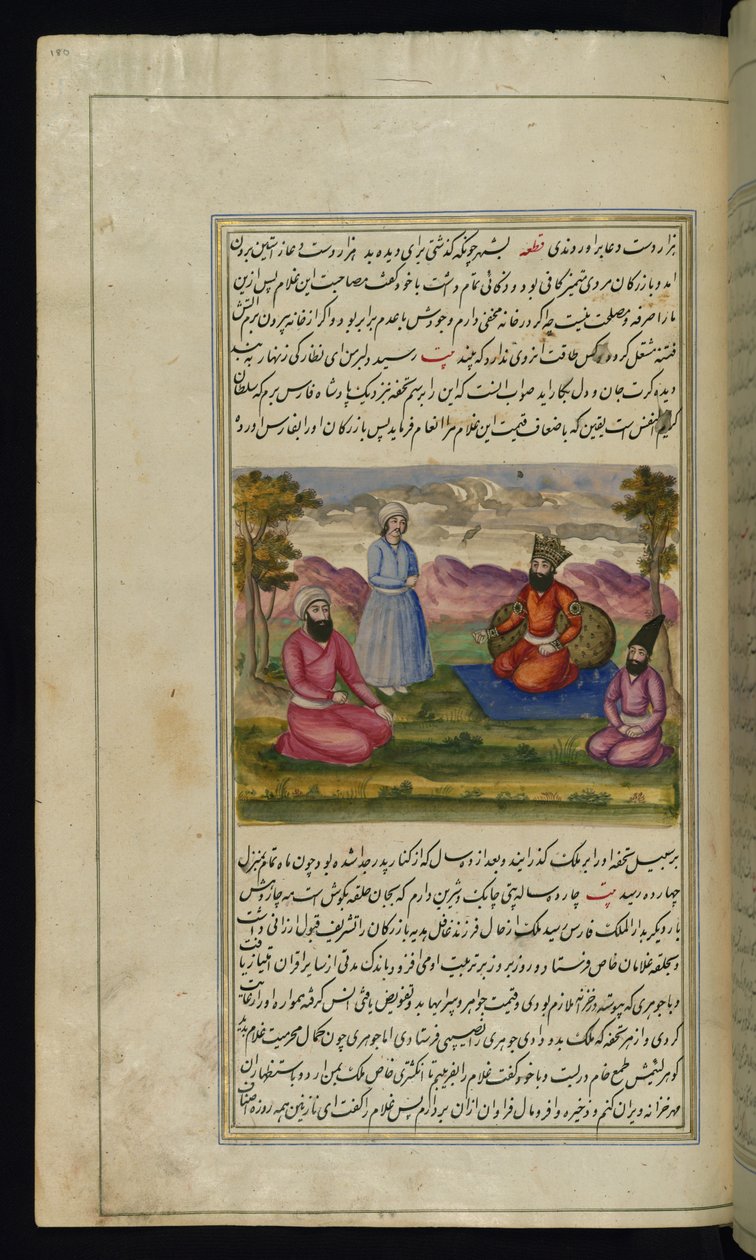 180
هزار دست دعا برآوردندی قطعه بشهر چونکه گذشتی برای دیدن بد هزار دست دعا ز آستین برون
آمد و بازرگان مردی متمیز کافی بود و ذکائی تمام داشت با خود گفت مصاحبت این غلام پس ازین
ما را صرفه و مصلحت نیست چه اگر در خانه مخفی دارم وجودش با عدم برابر بود و اگر از خانه بیرون برم آتش
فتنه مشتعل گردد کس طاقت آن روی ندارد که ببیند بیت رسید دلبر من ای نظارگی زنهار ببند
دیده گرت جان و دل بکار آید صواب آنست که این را برسم تحفه نزدیک پادشاه فارس برم که سلطان
کریم النفس است یقین که باضعاف قیمت این غلام مرا انعام فرماید پس بازرگان او را بفارس آورده
بر سبیل تحفه او را بر ملک گذرانید و بعد از دو سال که از کنار پدر جدا شده بود چون ماه تمام بمنزل
چهارده رسید بیت چارده ساله بتی چابک و شیرین دارم که بجان حلقه بگوش است مه چاردهش
بار دیگر بدار الملک فارس رسید ملک از حال فرزند غافل هدیه بازرگان را تشریف قبول ارزانی داشت
و بحلقه غلامان خاص فرستاد و روز بروز بر تربیت او می افزود باندک مدتی از سایر اقران امتیاز یافت
و با جوهری که پیوسته در خزانه ملازم بودی و قیمت جواهر و پیرایها بدو تفویض یافتی انس گرفته همواره او را رعایت
کردی و از هر تحفه که ملک بدو دادی جوهری را نصیبی فرستادی اما جوهری چون کمال محرمیت غلام بدید
گوهر لئیمش طمع خام دربست و با خود گفت غلام را بفریبم تا انگشتری خاص ملک بمن آرد و باستظهار آن
مهر خزانه ویران کنم و ذخیره وافر و مال فراوان از آن بردارم پس غلام را گفت ای نازنین همه روزه اصناف